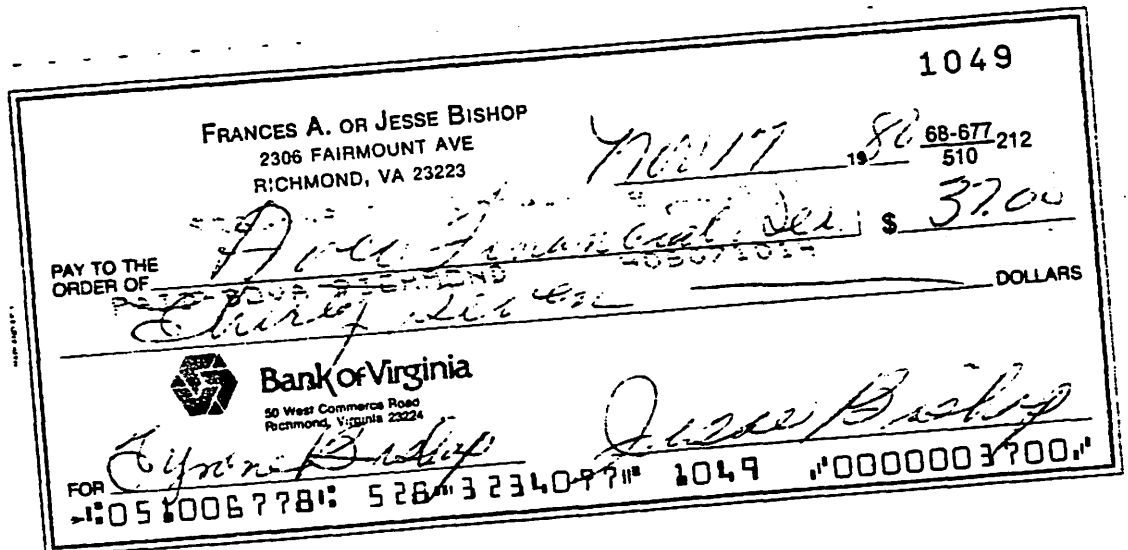 1049
FRANCES A. OR JESSE BISHOP
2306 FAIRMOUNT AVE
RICHMOND, VA 23223
Nov 17 19 80 68-677 212
510
PAY TO THE
ORDER OF Financial Ser. $ 37.00
Thirty Seven DOLLARS
Bank of Virginia
50 West Commerce Road
Richmond, Virginia 23224
FOR Lynne Bishop Jesse Bishop
051006778 528 3234077 1049 0000003700